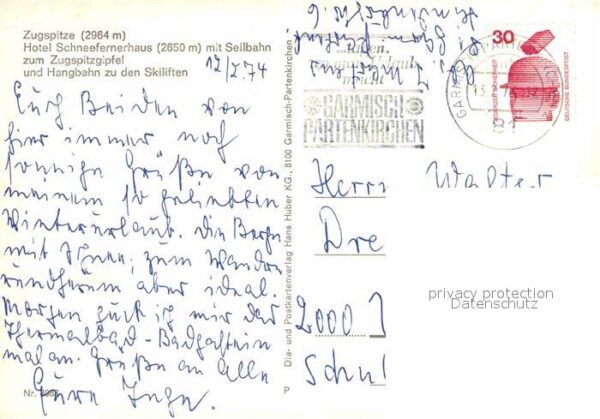 Zugspitze (2964 m)
Hotel Schneefernerhaus (2650 m) mit Seilbahn
zum Zugspitzgipfel
und Hangbahn zu den Skiliften
12/2.74
Euch Beiden von
hier immer noch
sonnige Grüße von
meinem so geliebten
Winterurlaub. Die Berge
mit Schnee, zum Wandern
rundherum aber ideal.
Morgen guck ich mir das
Thermalbad-Badgastein
mal an. Grüße an Alle
Eure Inge.
Nr.
P
Dia- und Postkartenverlag Hans Huber KG., 8100 Garmisch-Partenkirchen
GARMISCH
PARTENKIRCHEN
30
DEUTSCHE BUNDESPOST
Herrn Walter
Dre
2000
Schul
privacy protection
Datenschutz